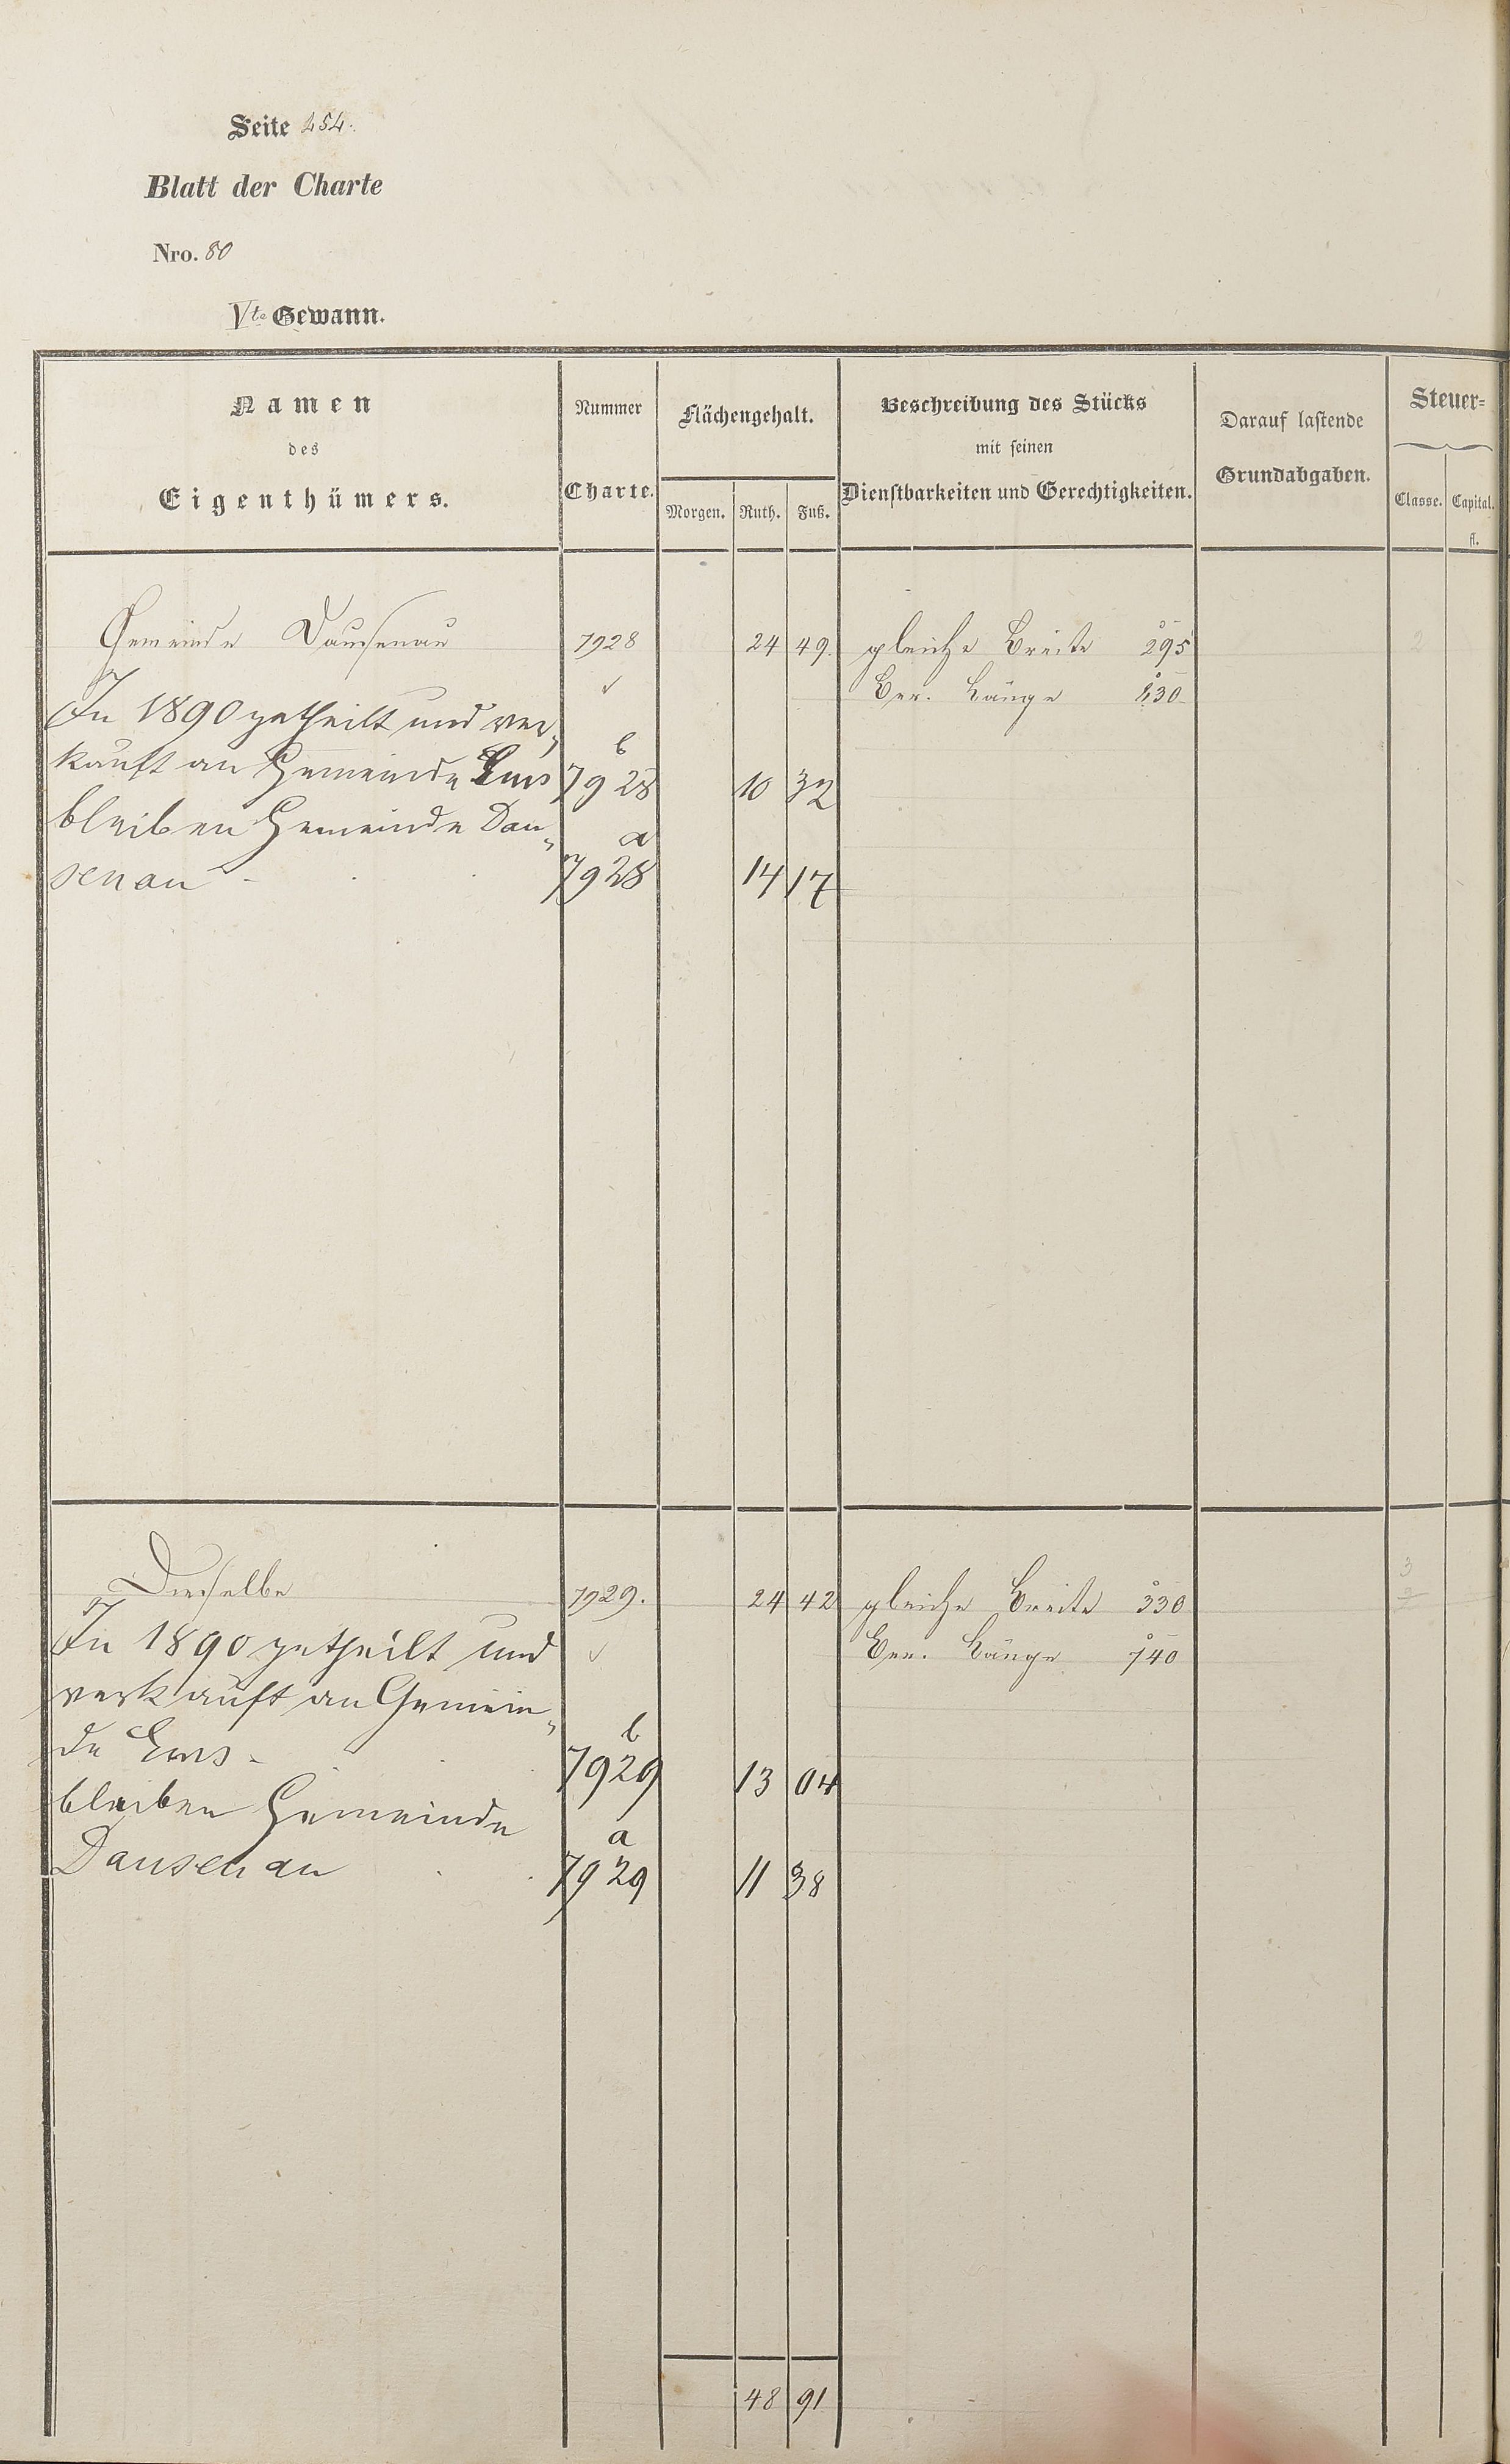 Seite 254.
Blatt der Charte
Nro. 80
Vte Gewann.
Namen
des
Eigenthümers.
Nummer
Charte.
Flächengehalt.
Morgen. Ruth. Fuß.
Beschreibung des Stücks
mit seinen
Dienstbarkeiten und Gerechtigkeiten.
Darauf lastende
Grundabgaben.
Steuer=
Classe. Capital.
fl.
Gemeinde Dausenau 7928 24 49. gleiche Breite 295
Ber. Länge 830
In 1890 getheilt und ver„
b
kauft an Gemeinde Ems 7928 10 32
bleiben Gemeinde Dau„
a
senau - 7928 14 17
2
Dieselbe 7929. 24 42 gleiche Breite 330
Ber. Länge 740
3
In 1890 getheilt und
verkauft an Gemein„
b
de Ems - 7929 13 04
bleiben Gemeinde
a
Dausenau 7929 11 38
48 91